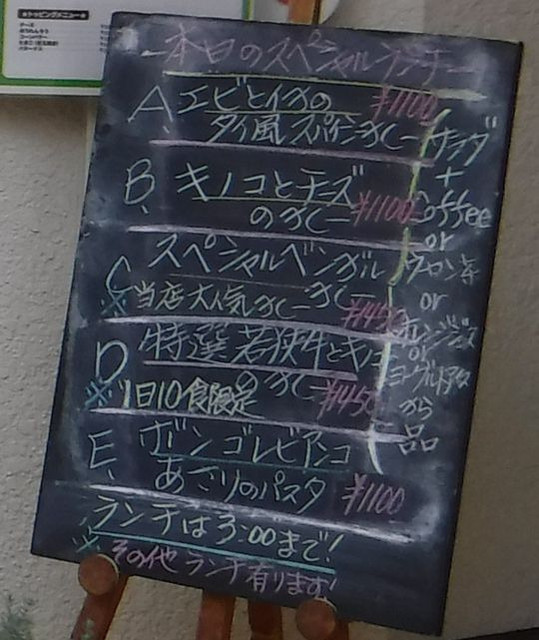 ★トッピングメニュー★
チーズ
ほうれんそう
本日のスペシャルランチー
A、エビとイカの ¥1100
タイ風スパイシーカレー
B、キノコとチーズ
のカレー ¥1100
C スペシャルベンガル
カレー
※当店大人気カレー ¥1450
D 特選若狭牛とキノコ
のカレー
※1日10食限定 ¥1450
E、ボンゴレビアンコ
あさりのパスタ ¥1100
サラダ
+
Coffee
or
ウーロン茶
or
オレンジジュース
or
ヨーグルトドリンク
から
一品
ランチは3:00まで!
※その他ランチ有ります!